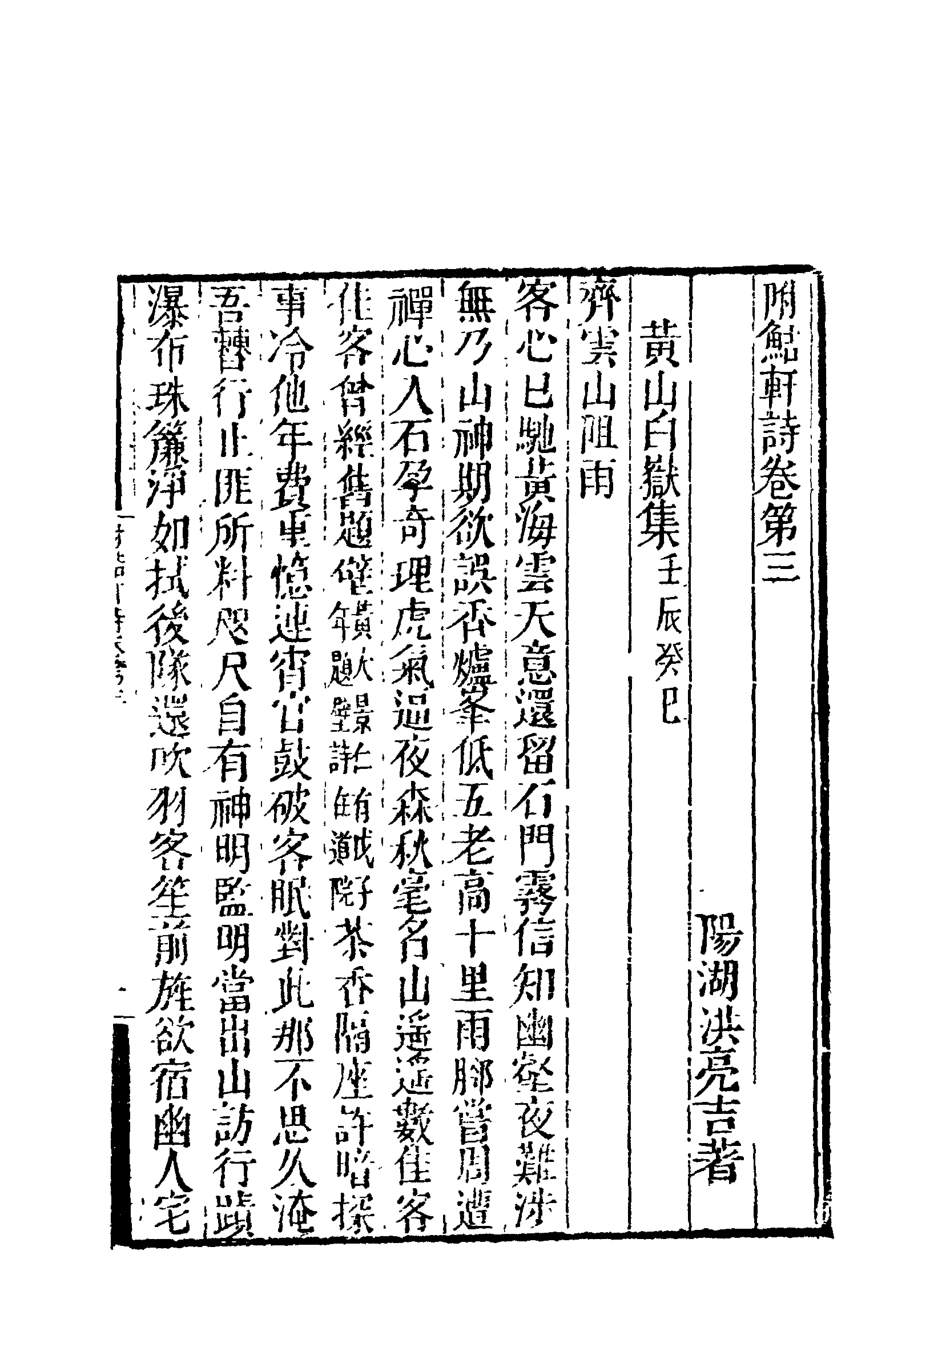 附鮚軒詩卷第三
陽湖洪亮吉著
黃山白嶽集壬辰癸巳
齊雲山阻雨
客心已馳黃海雲天意還留石門霧信知幽壑夜難涉
無乃山神期欲誤香爐峯低五老高十里雨腳嘗周遭
禪心入石孕奇理虎氣過夜森秋毫名山遙遙數佳客
佳客曾經舊題壁黃大景仁有戊子年題壁詩在道院茶香隔座許暗探
事冷他年費重憶連宵官鼓破客眠對此那不思久淹
吾曹行止匪所料咫尺自有神明監明當出山訪行蹟
瀑布珠簾淨如拭後隊還吹羽客笙前旌欲宿幽人宅